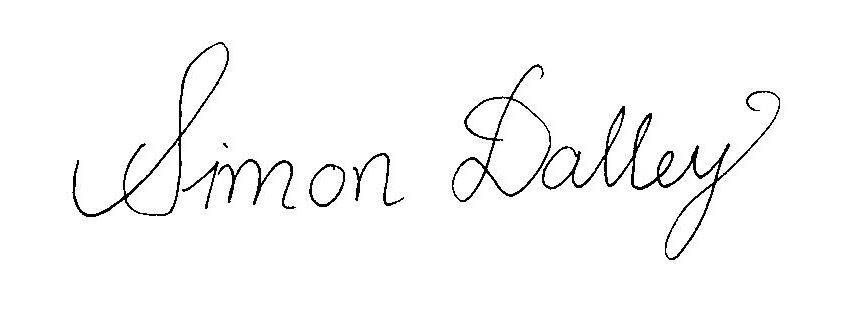 Simon Dalley